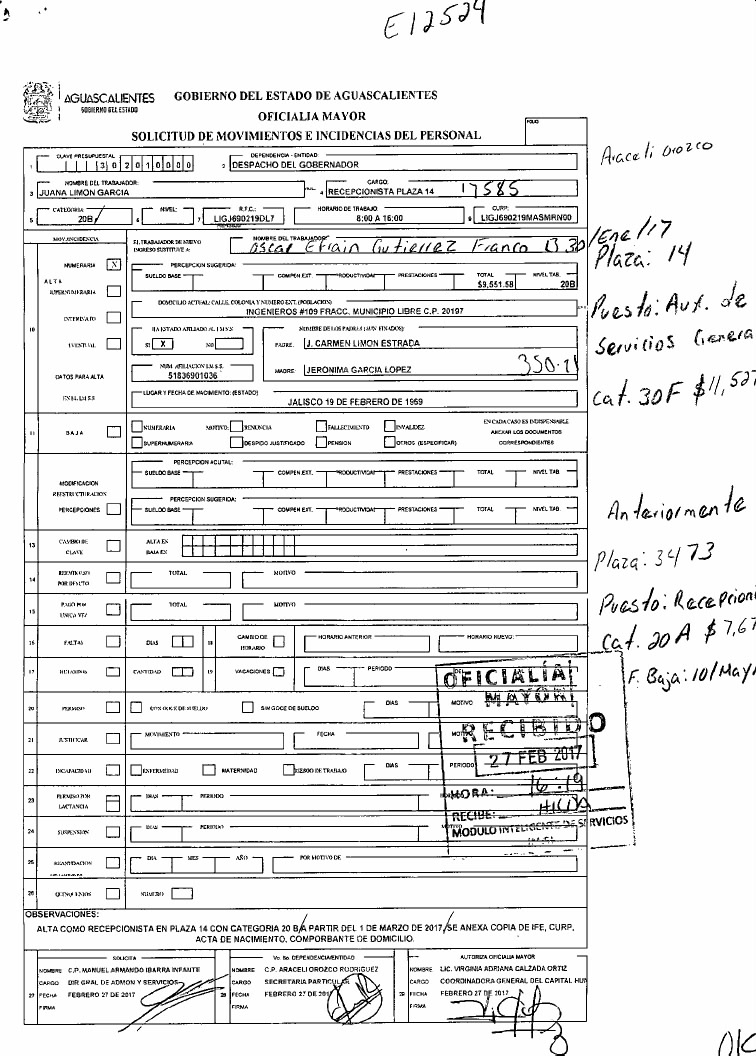 E12524
AGUASCALIENTES
GOBIERNO DEL ESTADO
GOBIERNO DEL ESTADO DE AGUASCALIENTES
OFICIALIA MAYOR
SOLICITUD DE MOVIMIENTOS E INCIDENCIAS DEL PERSONAL
FOLIO
Araceli Orozco
CLAVE PRESUPUESTAL
DEPENDENCIA - ENTIDAD:
1 3 0 2 0 1 0 0 0 0 2 DESPACHO DEL GOBERNADOR
NOMBRE DEL TRABAJADOR: CARGO:
3 JUANA LIMON GARCIA 4 RECEPCIONISTA PLAZA 14 17585
CATEGORIA: NIVEL: R.F.C.: HORARIO DE TRABAJO: CURP:
5 20B 6 7 LIGJ690219DL7 8:00 A 16:00 9 LIGJ690219MASMRN00
MOV./INCIDENCIA EL TRABAJADOR DE NUEVO INGRESO SUSTITUYE A: NOMBRE DEL TRABAJADOR:
Oscar Efrain Gutierrez Franco B 30/Ene/17
Plaza: 14
Puesto: Aux. de
Servicios Genera
Cat. 30F $11,527
NUMERARIA X PERCEPCION SUGERIDA:
ALTA SUELDO BASE COMPEN.EXT. PRODUCTIVIDAD PRESTACIONES TOTAL NIVEL TAB.
SUPERNUMERARIA $9,551.58 20B
DOMICILIO ACTUAL: CALLE, COLONIA Y NUMERO EXT. (POBLACION)
INTERINATO INGENIEROS #109 FRACC. MUNICIPIO LIBRE C.P. 20197
10 HA ESTADO AFILIADO AL I.M.S.S. NOMBRE DE LOS PADRES (AUN FINADOS):
EVENTUAL SI X NO PADRE: J. CARMEN LIMON ESTRADA
DATOS PARA ALTA NUM. AFILIACION I.M.S.S. MADRE: JERONIMA GARCIA LOPEZ
51836901036
EN EL I.M.S.S LUGAR Y FECHA DE NACIMIENTO: (ESTADO)
JALISCO 19 DE FEBRERO DE 1969
11 BAJA NUMERARIA MOTIVO: RENUNCIA FALLECIMIENTO INVALIDEZ EN CADA CASO ES INDISPENSABLE
SUPERNUMERARIA DESPIDO JUSTIFICADO PENSION OTROS (ESPECIFICAR) ANEXAR LOS DOCUMENTOS CORRESPONDIENTES
PERCEPCION ACUTAL:
MODIFICACION SUELDO BASE COMPEN.EXT. PRODUCTIVIDAD PRESTACIONES TOTAL NIVEL TAB.
REESTRUCTURACION
PERCEPCION SUGERIDA:
PERCEPCIONES SUELDO BASE COMPEN.EXT. PRODUCTIVIDAD PRESTACIONES TOTAL NIVEL TAB.
Anteriormente
Plaza: 3473
Puesto: Recepcioni
Cat. 20A $7,67
F. Baja: 10/May/
13 CAMBIO DE CLAVE ALTA EN
BAJA EN
14 REEMBOLSO POR DEFECTO TOTAL MOTIVO
15 PAGO POR UNICA VEZ TOTAL MOTIVO
16 FALTAS DIAS 18 CAMBIO DE HORARIO HORARIO ANTERIOR HORARIO NUEVO:
17 RETARDOS CANTIDAD 19 VACACIONES DIAS PERIODO
20 PERMISO CON GOCE DE SUELDO SIN GOCE DE SUELDO DIAS MOTIVO
21 JUSTIFICAR MOVIMIENTO FECHA MOTIVO
22 INCAPACIDAD ENFERMEDAD MATERNIDAD RIESGO DE TRABAJO DIAS PERIODO
OFICIALÍA
MAYOR
RECIBIDO
27 FEB 2017
HORA: 16:19
RECIBE: HILDA
MODULO INTELIGENTE DE SERVICIOS
23 PERMISO POR LACTANCIA DIAS PERIODO
24 SUSPENSION DIAS PERIODO MOTIVO
25 REANUDACION DIA MES AÑO POR MOTIVO DE
26 QUINQUENIOS NUMERO
OBSERVACIONES:
ALTA COMO RECEPCIONISTA EN PLAZA 14 CON CATEGORIA 20 B/A PARTIR DEL 1 DE MARZO DE 2017/SE ANEXA COPIA DE IFE, CURP,
ACTA DE NACIMIENTO, COMPORBANTE DE DOMICILIO.
SOLICITA Vo. Bo. DEPENDENCIA/ENTIDAD AUTORIZA OFICIALIA MAYOR
NOMBRE C.P. MANUEL ARMANDO IBARRA INFANTE NOMBRE C.P. ARACELI OROZCO RODRIGUEZ NOMBRE LIC. VIRGINIA ADRIANA CALZADA ORTIZ
CARGO DIR GRAL DE ADMON Y SERVICIOS CARGO SECRETARIA PARTICULAR CARGO COORDINADORA GENERAL DEL CAPITAL HUM
27 FECHA FEBRERO 27 DE 2017 28 FECHA FEBRERO 27 DE 2017 29 FECHA FEBRERO 27 DE 2017
FIRMA FIRMA FIRMA
OK